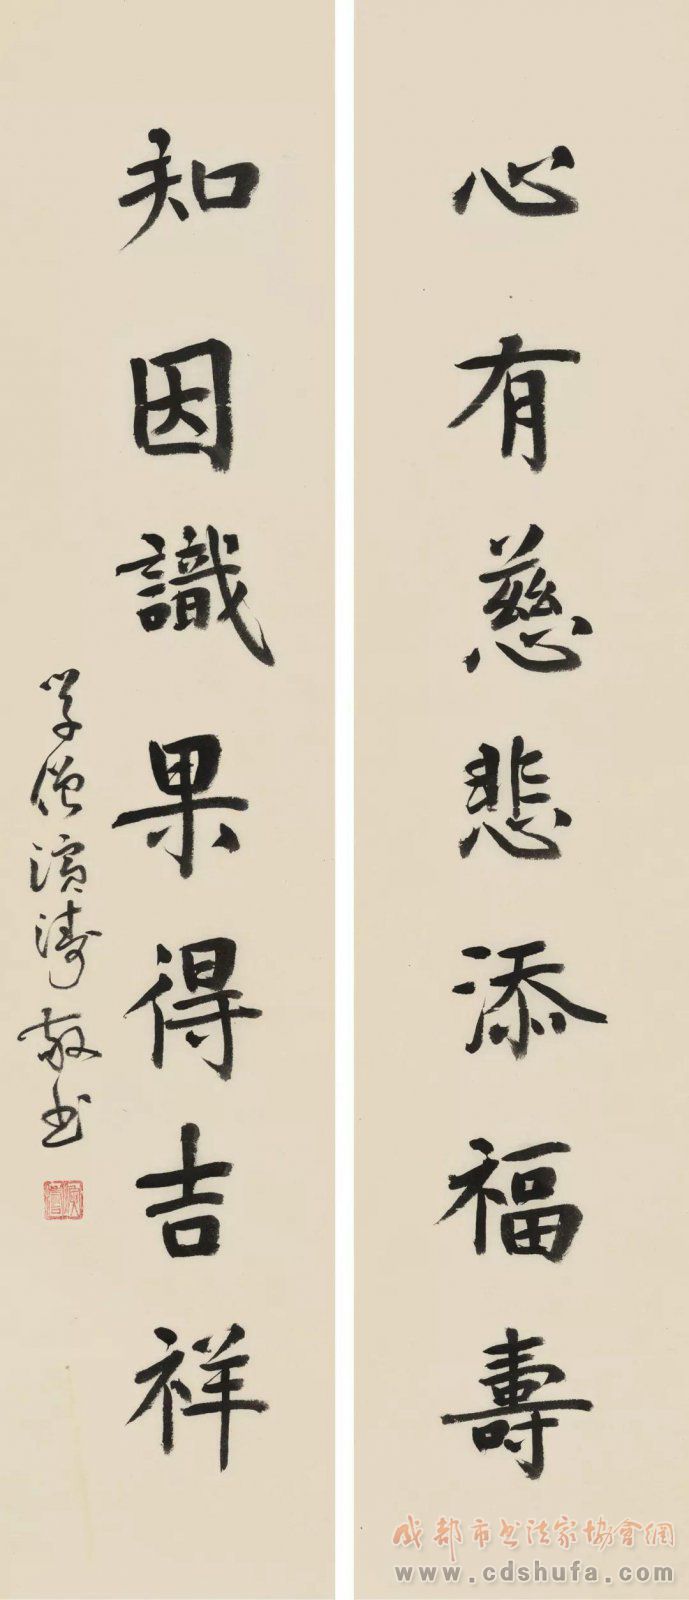 心有慈悲添福壽
知因識果得吉祥
学僧演濤敬书
成都市书法家協會網
www.cdshufa.com